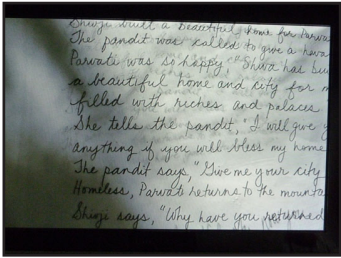 Shivji built a beautiful home for Parva
The pandit was called to give a hava
Parvati was so happy. "Shiva has bui
a beautiful home and city for m
filled with riches and palaces
She tells the pandit, "I will give y
anything if you will bless my home
The pandit says, "Give me your city
Homeless, Parvati returns to the mounta
Shivji says, "Why have you returned